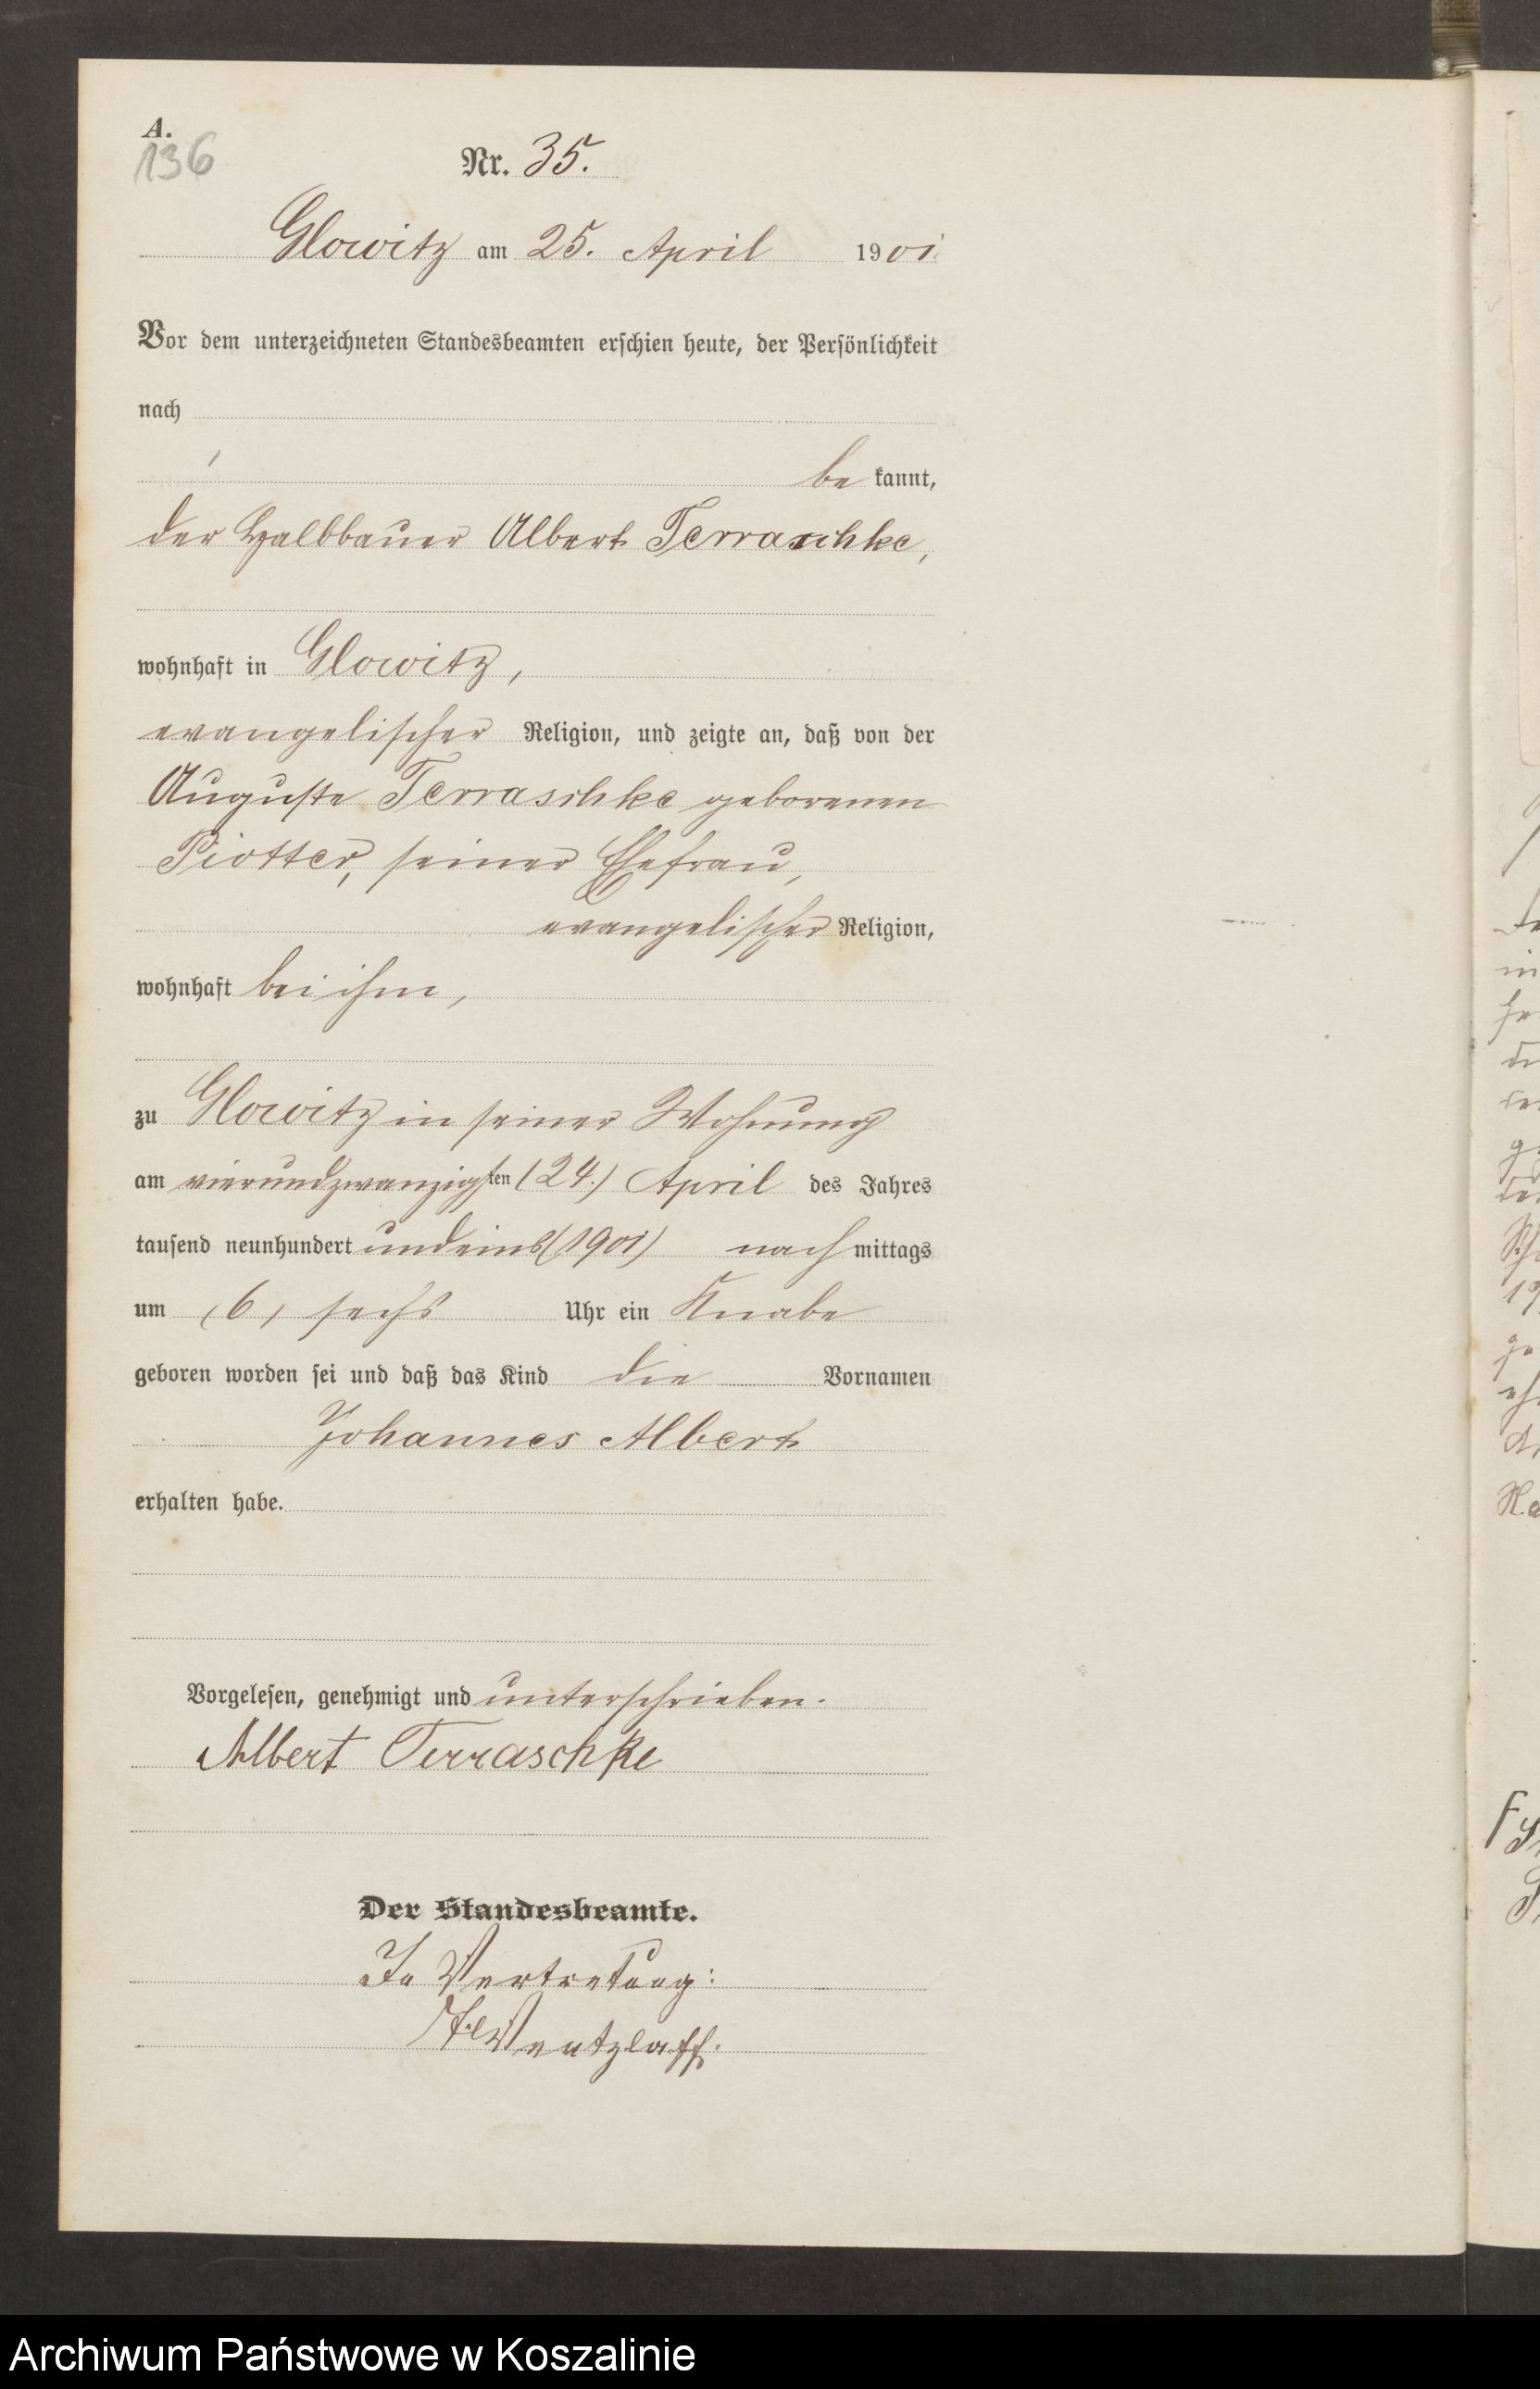 A.
136
Nr. 35.
Glowitz am 25. April 1901.
Vor dem unterzeichneten Standesbeamten erschien heute, der Persönlichkeit
nach
be kannt,
der Halbbauer Albert Terraschke,
wohnhaft in Glowitz,
evangelischer Religion, und zeigte an, daß von der
Auguste Terraschke geborenen
Piotter, seiner Ehefrau,
evangelischer Religion,
wohnhaft bei ihm,
zu Glowitz in seiner Wohnung
am vierundzwanzigsten (24.) April des Jahres
tausend neunhundert undeins (1901) nachmittags
um (6) sechs Uhr ein Knabe
geboren worden sei und daß das Kind die Vornamen
Johannes Albert
erhalten habe.
Vorgelesen, genehmigt und unterschrieben.
Albert Terraschke
Der Standesbeamte.
In Vertretung:
Wentzlaff.
Archiwum Państwowe w Koszalinie